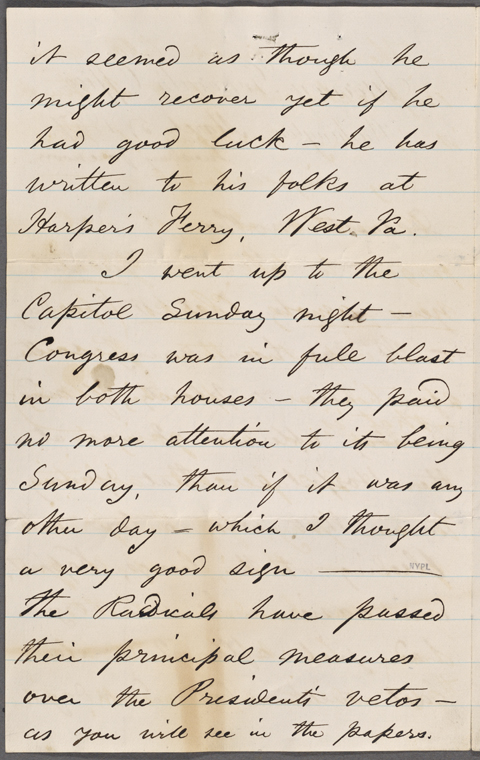 it seemed as though he
might recover yet if he
had good luck – he has
written to his folks at
Harper's Ferry, West Va.
I went up to the
Capitol Sunday night –
Congress was in full blast
in both houses – they paid
no more attention to its being
Sunday, than if it was any
other day – which I thought
a very good sign —
NYPL
the Radicals have passed
their principal measures
over the President's vetos –
as you will see in the papers.